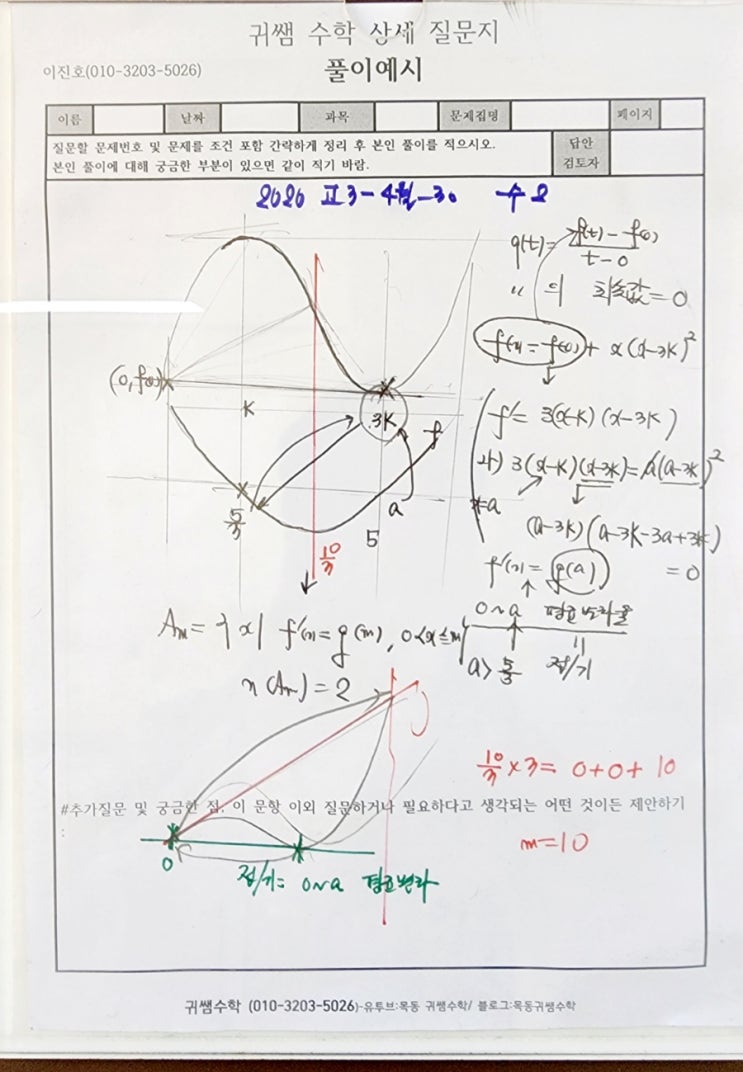 귀쌤 수학 상세 질문지
이진호(010-3203-5026)
풀이예시
이름 날짜 과목 문제집명 페이지
질문할 문제번호 및 문제를 조건 포함 간략하게 정리 후 본인 풀이를 적으시오.
본인 풀이에 대해 궁금한 부분이 있으면 같이 적기 바람.
답안
검토자
2020 고3-4월-30 수
g(t)= f(t)-f(0)
t-0
〃 의 최솟값=0
f(x)=f(0)+x(x-3k)²
(0,f(0))
k
3k
f
f'=3(x-k)(x-3k)
3(x-k)(x-3k)=
(a-3k)²
x=a
a
5/3
10/3
5
(a-3k)(a-3k-3a+3k)
=0
f'(x)=g(a)
0~a 평균변화율
Aₘ={x| f'(x)=g(m), 0<x≤m}
a> 5/3
접/기
n(Aₘ)=2
10/3 ×3= 0+0+10
#추가질문 및 궁금한 점, 이 문항 이외 질문하거나 필요하다고 생각되는 어떤 것이든 제안하기
:
m=10
0
접/기= 0~a 평균변화
귀쌤수학 (010-3203-5026)-유투브:목동 귀쌤수학/ 블로그:목동귀쌤수학